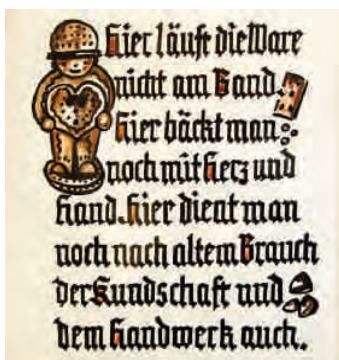 Hier läuft die Ware
nicht am Band.
Hier bäckt man
noch mit Herz und
Hand. Hier dient man
noch nach altem Brauch
der Kundschaft und
dem Handwerk auch.